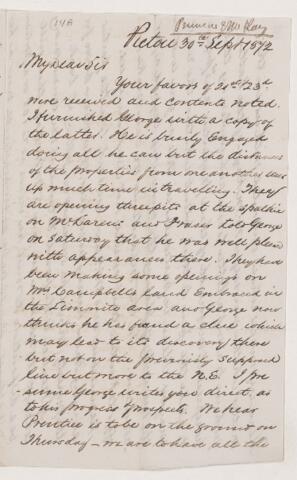 Pictou 30th Sept 1872
My Dear Sir
Your favors of 21st & 23d
were received and contents noted.
I furnished George with a copy of
the latter. He is busily engaged
doing all he can but the distance
of the properties from one another
up much time in travelling. They
are opening three pits at the Spathic
on McLaren's and Fraser told George
on Saturday that he was well pleased
with appearances there. They have
been making some openings on
Mrs Campbells land embraced in
the Limonite area and George now
thinks he has found a clue which
may lead to its discovery there
but not on the previously supposed
line but more to the N.E. I pre
sume George writes you direct, as
to his progress & prospects. We hear
Prentice is to be on the ground on
Thursday - we are to have all the